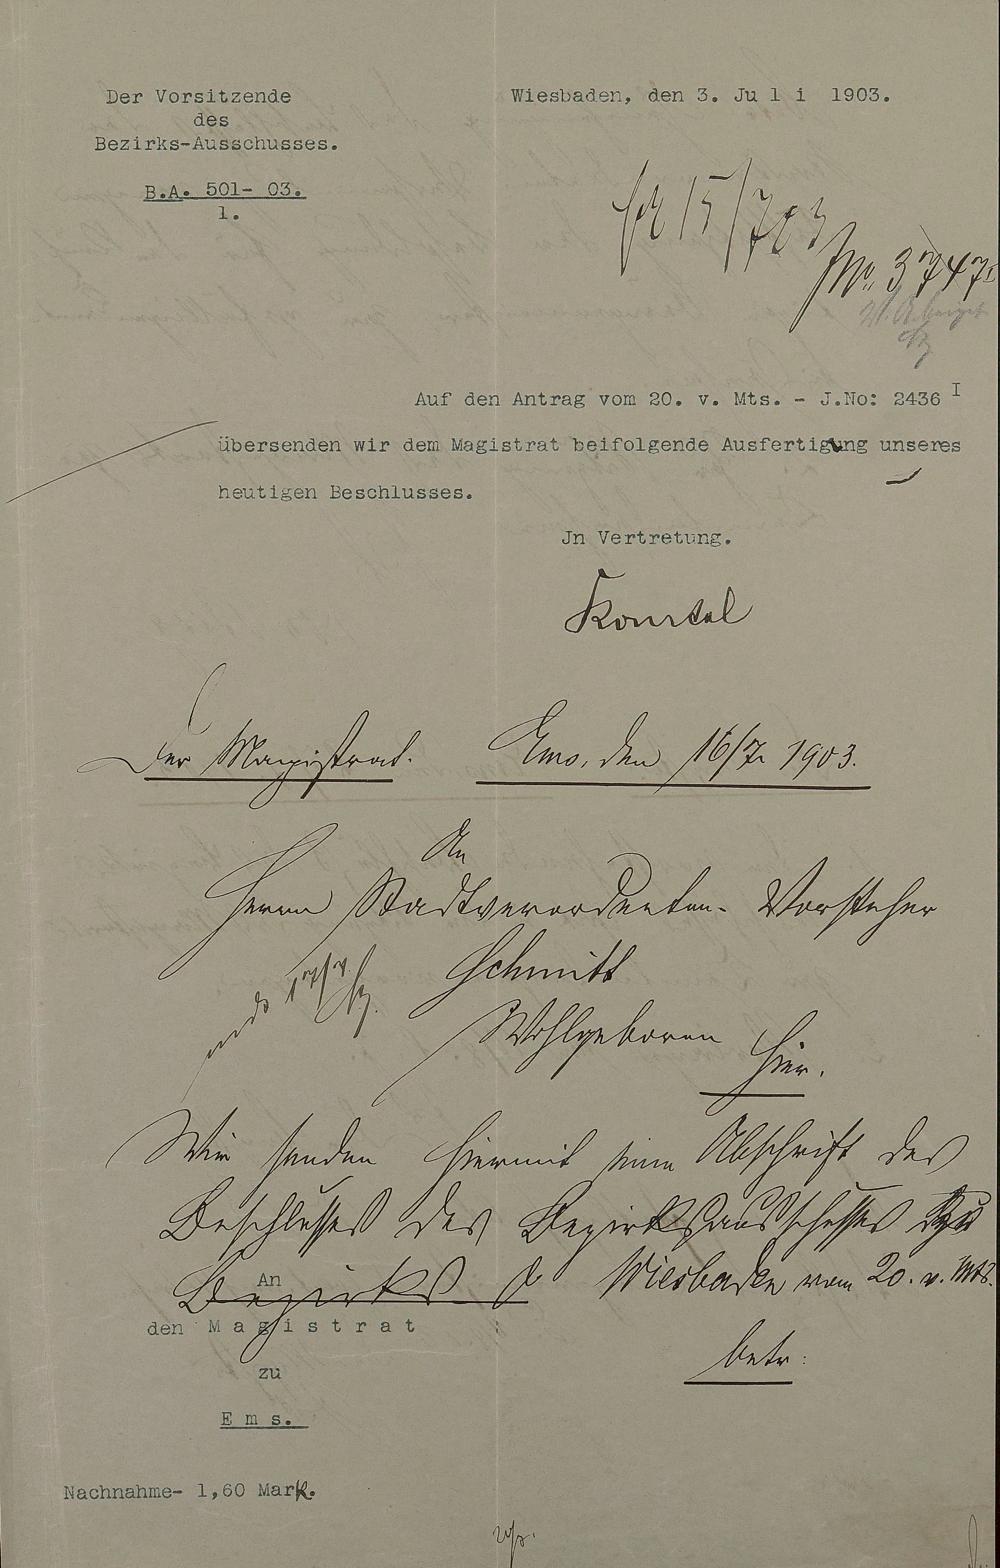 Der Vorsitzende
des
Bezirks-Ausschusses.
B.A. 501- 03.
1.
Wiesbaden, den 3. Ju l i 1903.
15/7 03
No. 3747
Auf den Antrag vom 20. v. Mts. - J.No: 2436 I
übersenden wir dem Magistrat beifolgende Ausfertigung unseres
heutigen Beschlusses.
Jn Vertretung.
Der Magistrat. Ems, den 16/7. 1903.
An
Herrn Stadtverordneten-Vorsteher
Schmitt
Wohlgeboren
hier.
17/7
Wir senden hiermit eine Abschrift des
Beschlusses des Bezirksausschusses zu
Bezirks Wiesbaden vom 20. v. Mts.
betr:
An
den M a g i s t r a t
zu
E m s.
Nachnahme- 1,60 Mark.